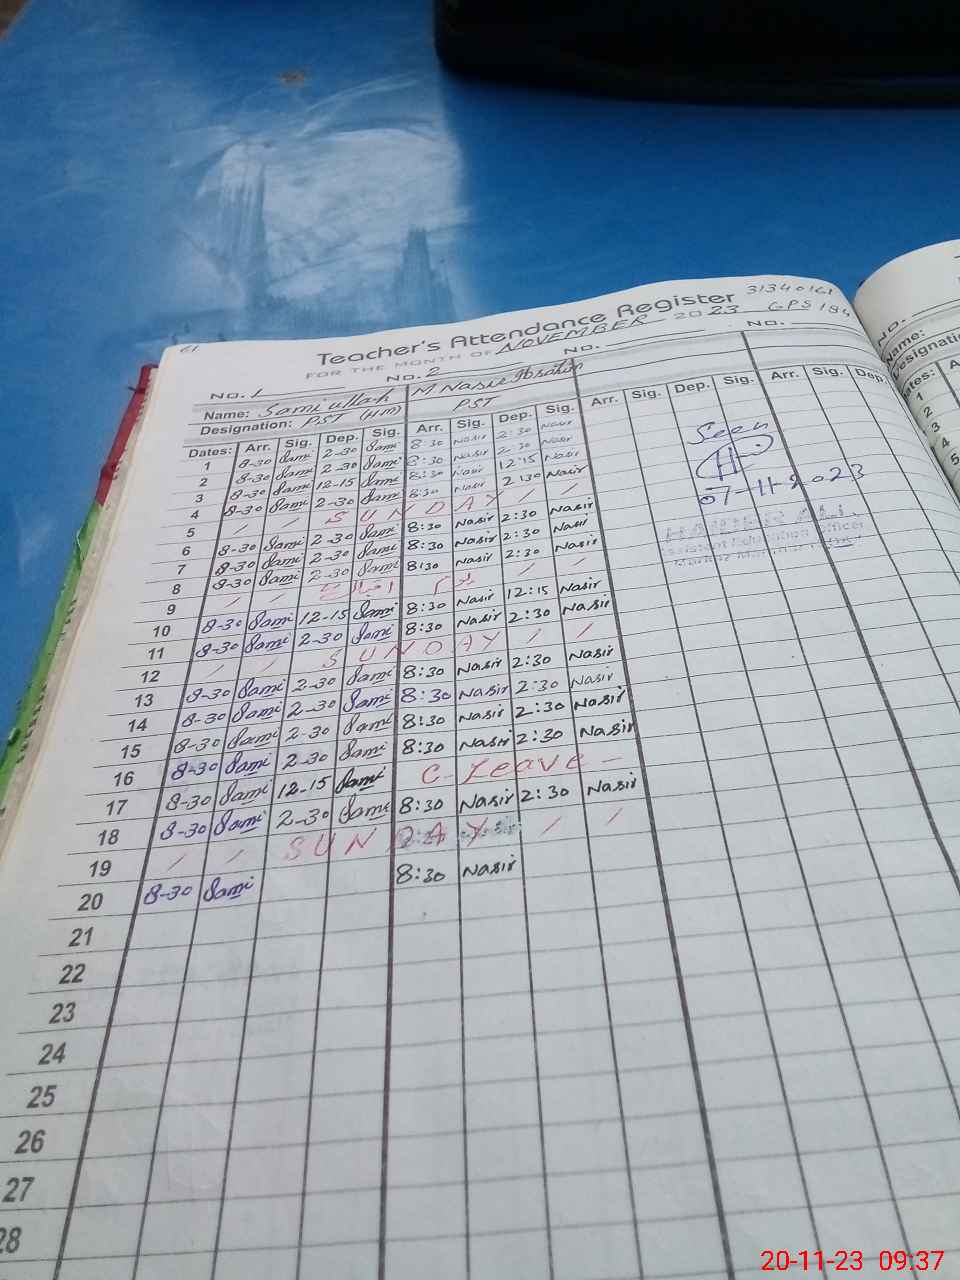 61
31340161
Teacher's Attendance Register
FOR THE MONTH OF NOVEMBER 2023 GPS 184
No. 1 No. 2 No. No.
Name: Sami ullah M Nasir
Designation: PST (HM) PST
Dates: Arr. Sig. Dep. Sig. Arr. Sig. Dep. Sig. Arr. Sig. Dep. Sig. Arr. Sig. Dep.
1 8-30 Sami 2-30 Sami 8:30 Nasir 2:30 Nasir
2 8-30 Sami 2-30 Sami 8:30 Nasir 2:30 Nasir
3 8-30 Sami 12-15 Sami 8:30 Nasir 12:15 Nasir
4 8-30 Sami 2-30 Sami 8:30 Nasir 2:30 Nasir
5 / / SUNDAY / /
6 8-30 Sami 2-30 Sami 8:30 Nasir 2:30 Nasir
7 8-30 Sami 2-30 Sami 8:30 Nasir 2:30 Nasir
8 8-30 Sami 2-30 Sami 8:30 Nasir 2:30 Nasir
9 / / / /
10 8-30 Sami 12-15 Sami 8:30 Nasir 12:15 Nasir
11 8-30 Sami 2-30 Sami 8:30 Nasir 2:30 Nasir
12 / / SUNDAY / /
13 8-30 Sami 2-30 Sami 8:30 Nasir 2:30 Nasir
14 8-30 Sami 2-30 Sami 8:30 Nasir 2:30 Nasir
15 8-30 Sami 2-30 Sami 8:30 Nasir 2:30 Nasir
16 8-30 Sami 2-30 Sami 8:30 Nasir 2:30 Nasir
17 8-30 Sami 12-15 Sami C-Leave -
18 8-30 Sami 2-30 Sami 8:30 Nasir 2:30 Nasir
19 / / SUNDAY / /
20 8-30 Sami 8:30 Nasir
21
22
23
24
25
26
27
28
Seen
07-11-2023
Assistant Education Officer
No.
Name:
Designation
Dates:
1
2
3
4
5
20-11-23 09:37